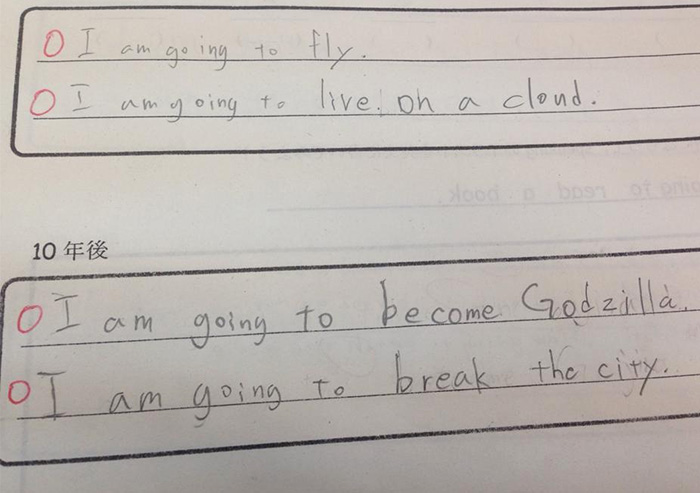 I am going to fly.
I am going to live on a cloud.
10年後
I am going to become Godzilla.
I am going to break the city.